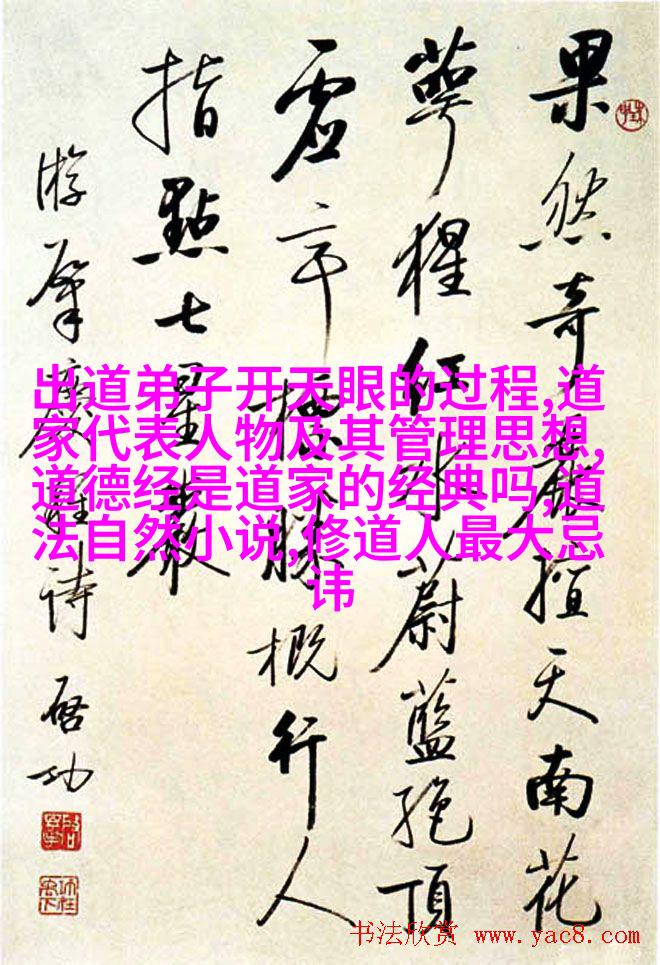 果然奇麗擅天南花
萼猩紅水蔚藍絕頂
虛亭勝概行人
指點七星巖
游肇慶詩 启功
出道弟子开天眼的过程,道
家代表人物及其管理思想,
道德经是道家的经典吗,道
法自然小说,修道人最大忌
讳
书法欣赏 www.yac8.com